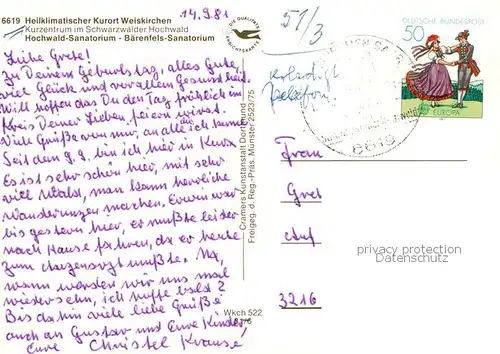 6619 Heilklimatischer Kurort Weiskirchen
Kurzentrum im Schwarzwälder Hochwald
Hochwald-Sanatorium - Bärenfels-Sanatorium
14.9.81
DIE QUALITÄTS
ANSICHTSKARTE
51/3
erledigt
Telefon.
DEUTSCHE BUNDESPOST
50
EUROPA
6619
Liebe Grete!
Zu Deinem Geburtstag, alles Gute,
viel Glück und vor allem Gesundheit.
Will hoffen das Du den Tag, fröhlich im
Kreis Deiner Lieben feiern wirst.
Viele Grüße von mir, an alle ich kenne
Seit dem 9.9. bin ich hier in Kur.
Es ist sehr schön hier, mit sehr
viel Wald, man kann herrliche
Wanderungen machen. Erwin war
bis gestern hier, er mußte leider
nach Hause fahren, da er heute
zum Augenarzt mußte. Na,
wann werden wir uns mal
wiedersehn, ich hoffe bald?
Bis dahin viele liebe Grüße
auch an Gustav und Eure Kinder,
Eure Christel Krause
Cramers Kunstanstalt Dortmund
Freigeg. d. Reg.-Präs. Münster 2523/75
Wkch 522
Frau
Gret
Auf
3216
privacy protection
Datenschutz